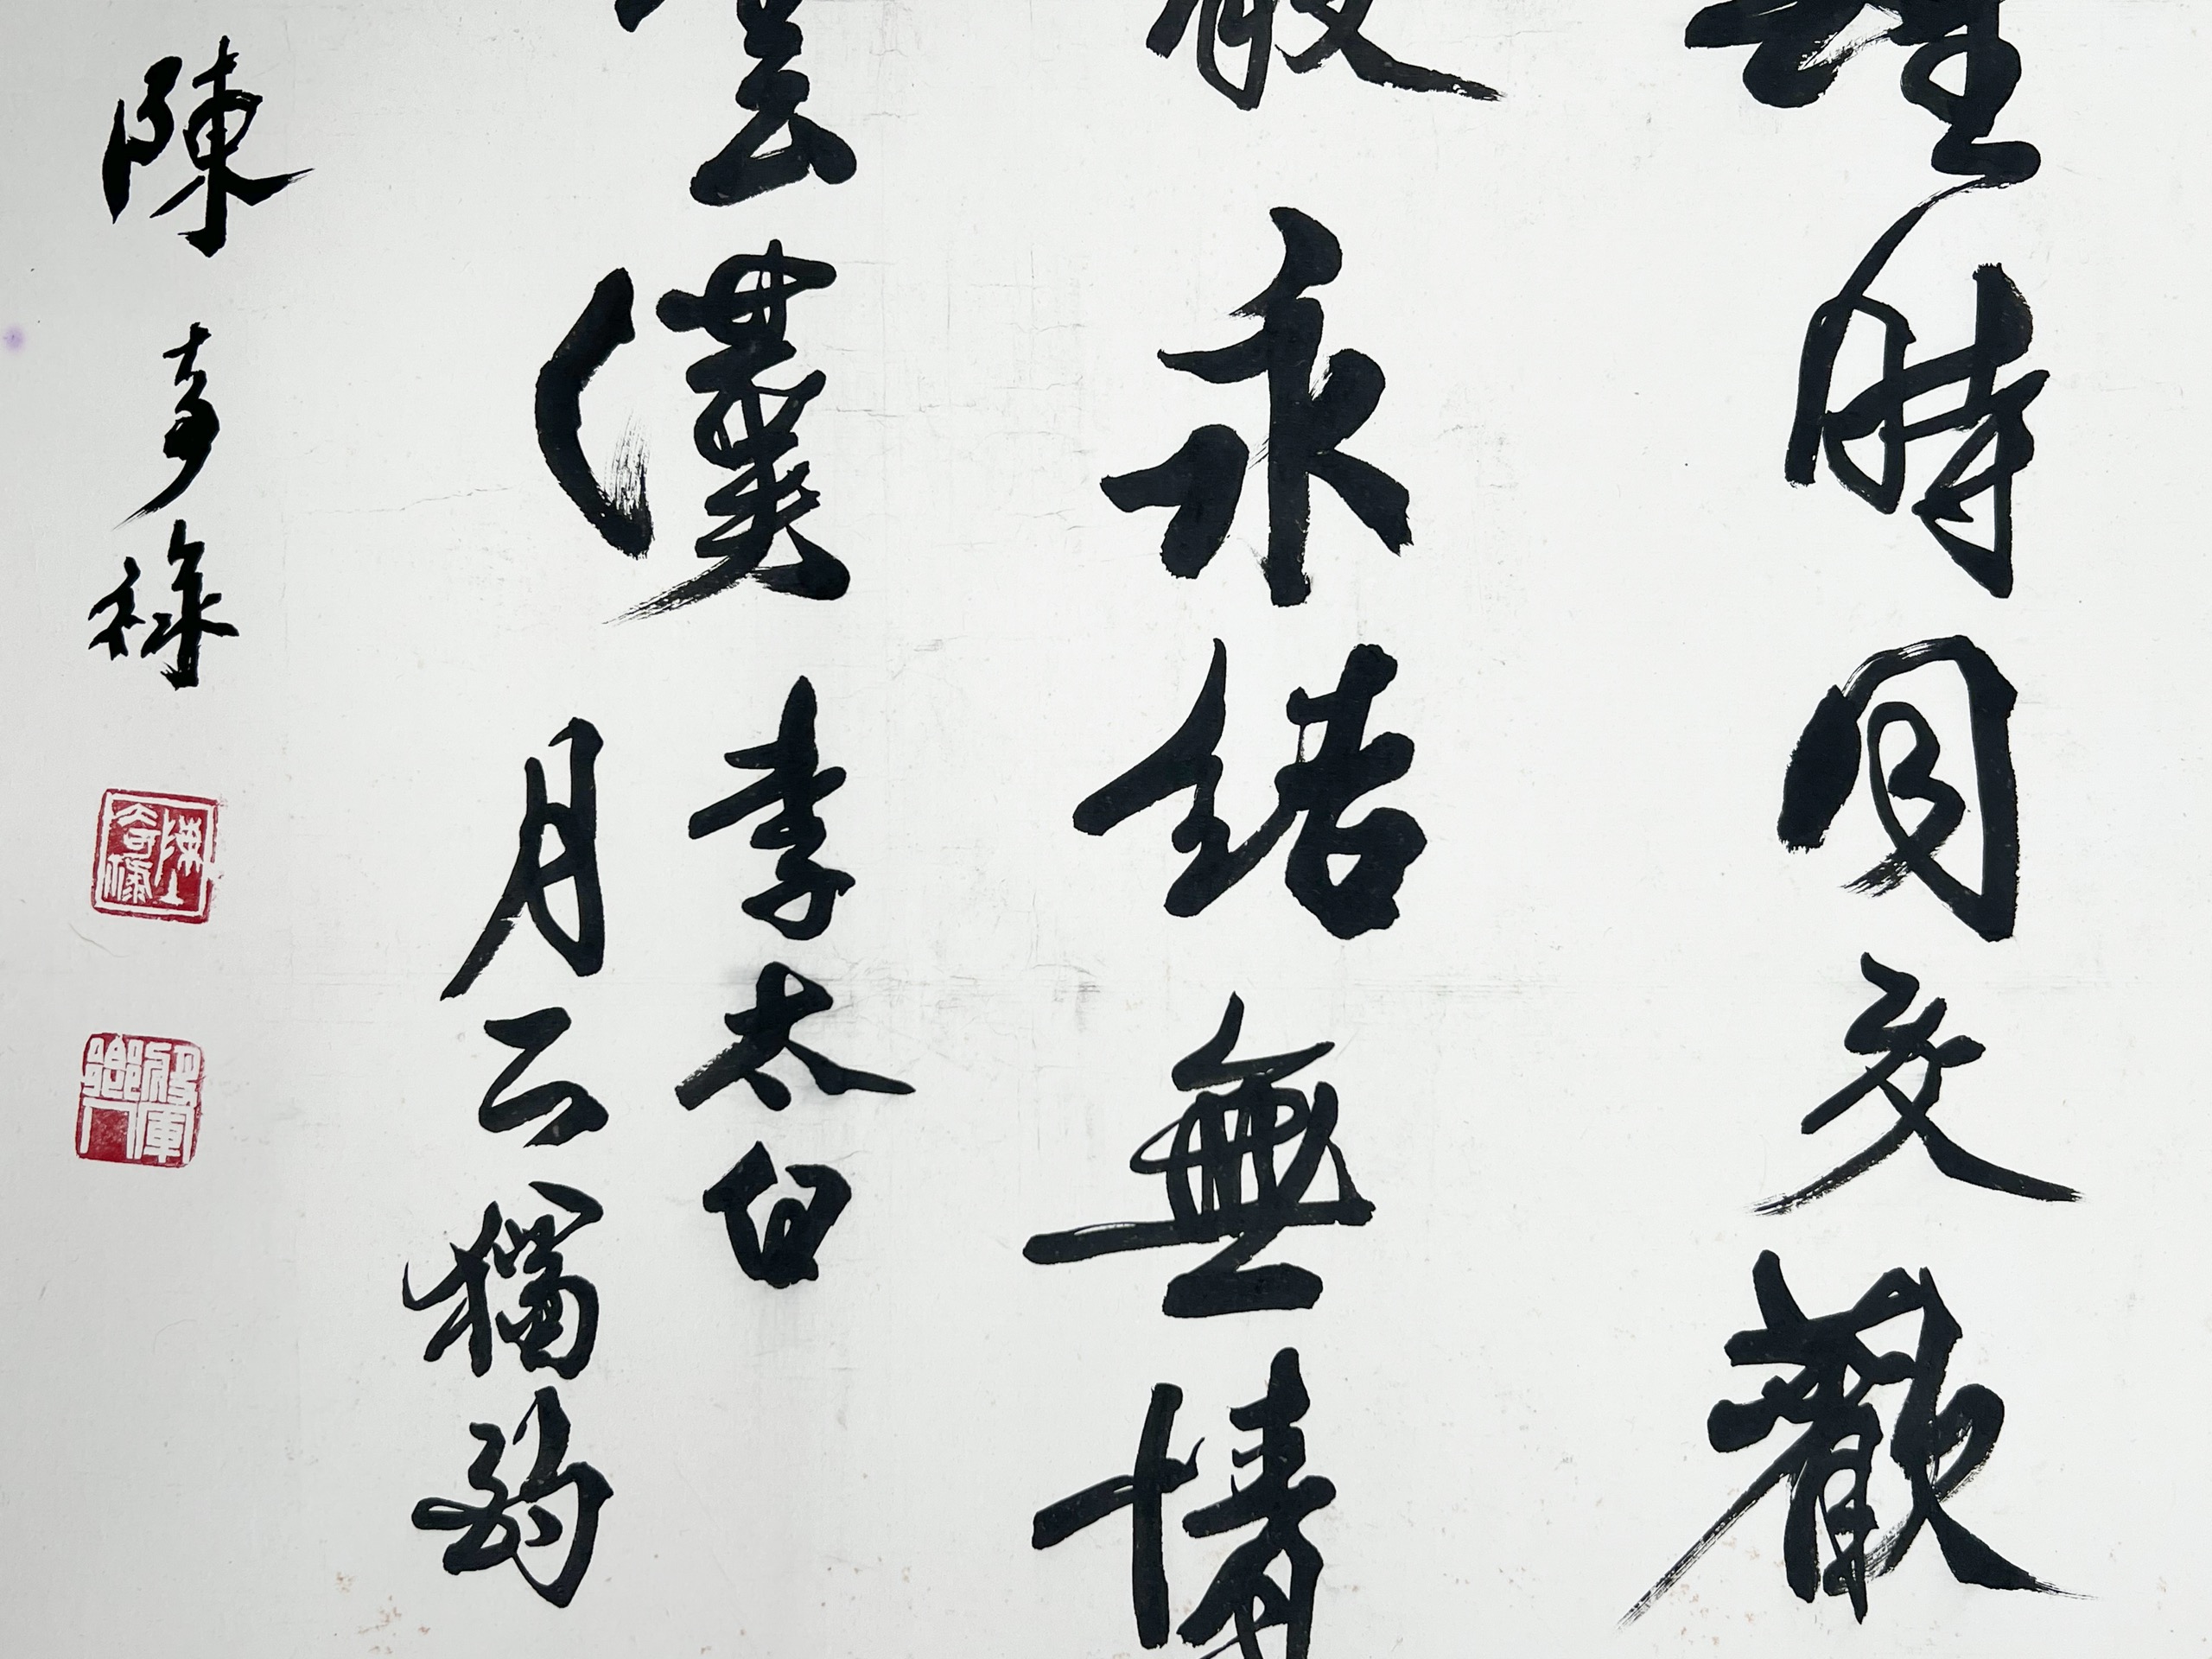 醒時同交歡
散永結無情
雲漢 李太白
月下獨酌
陳奇祿
陳奇祿